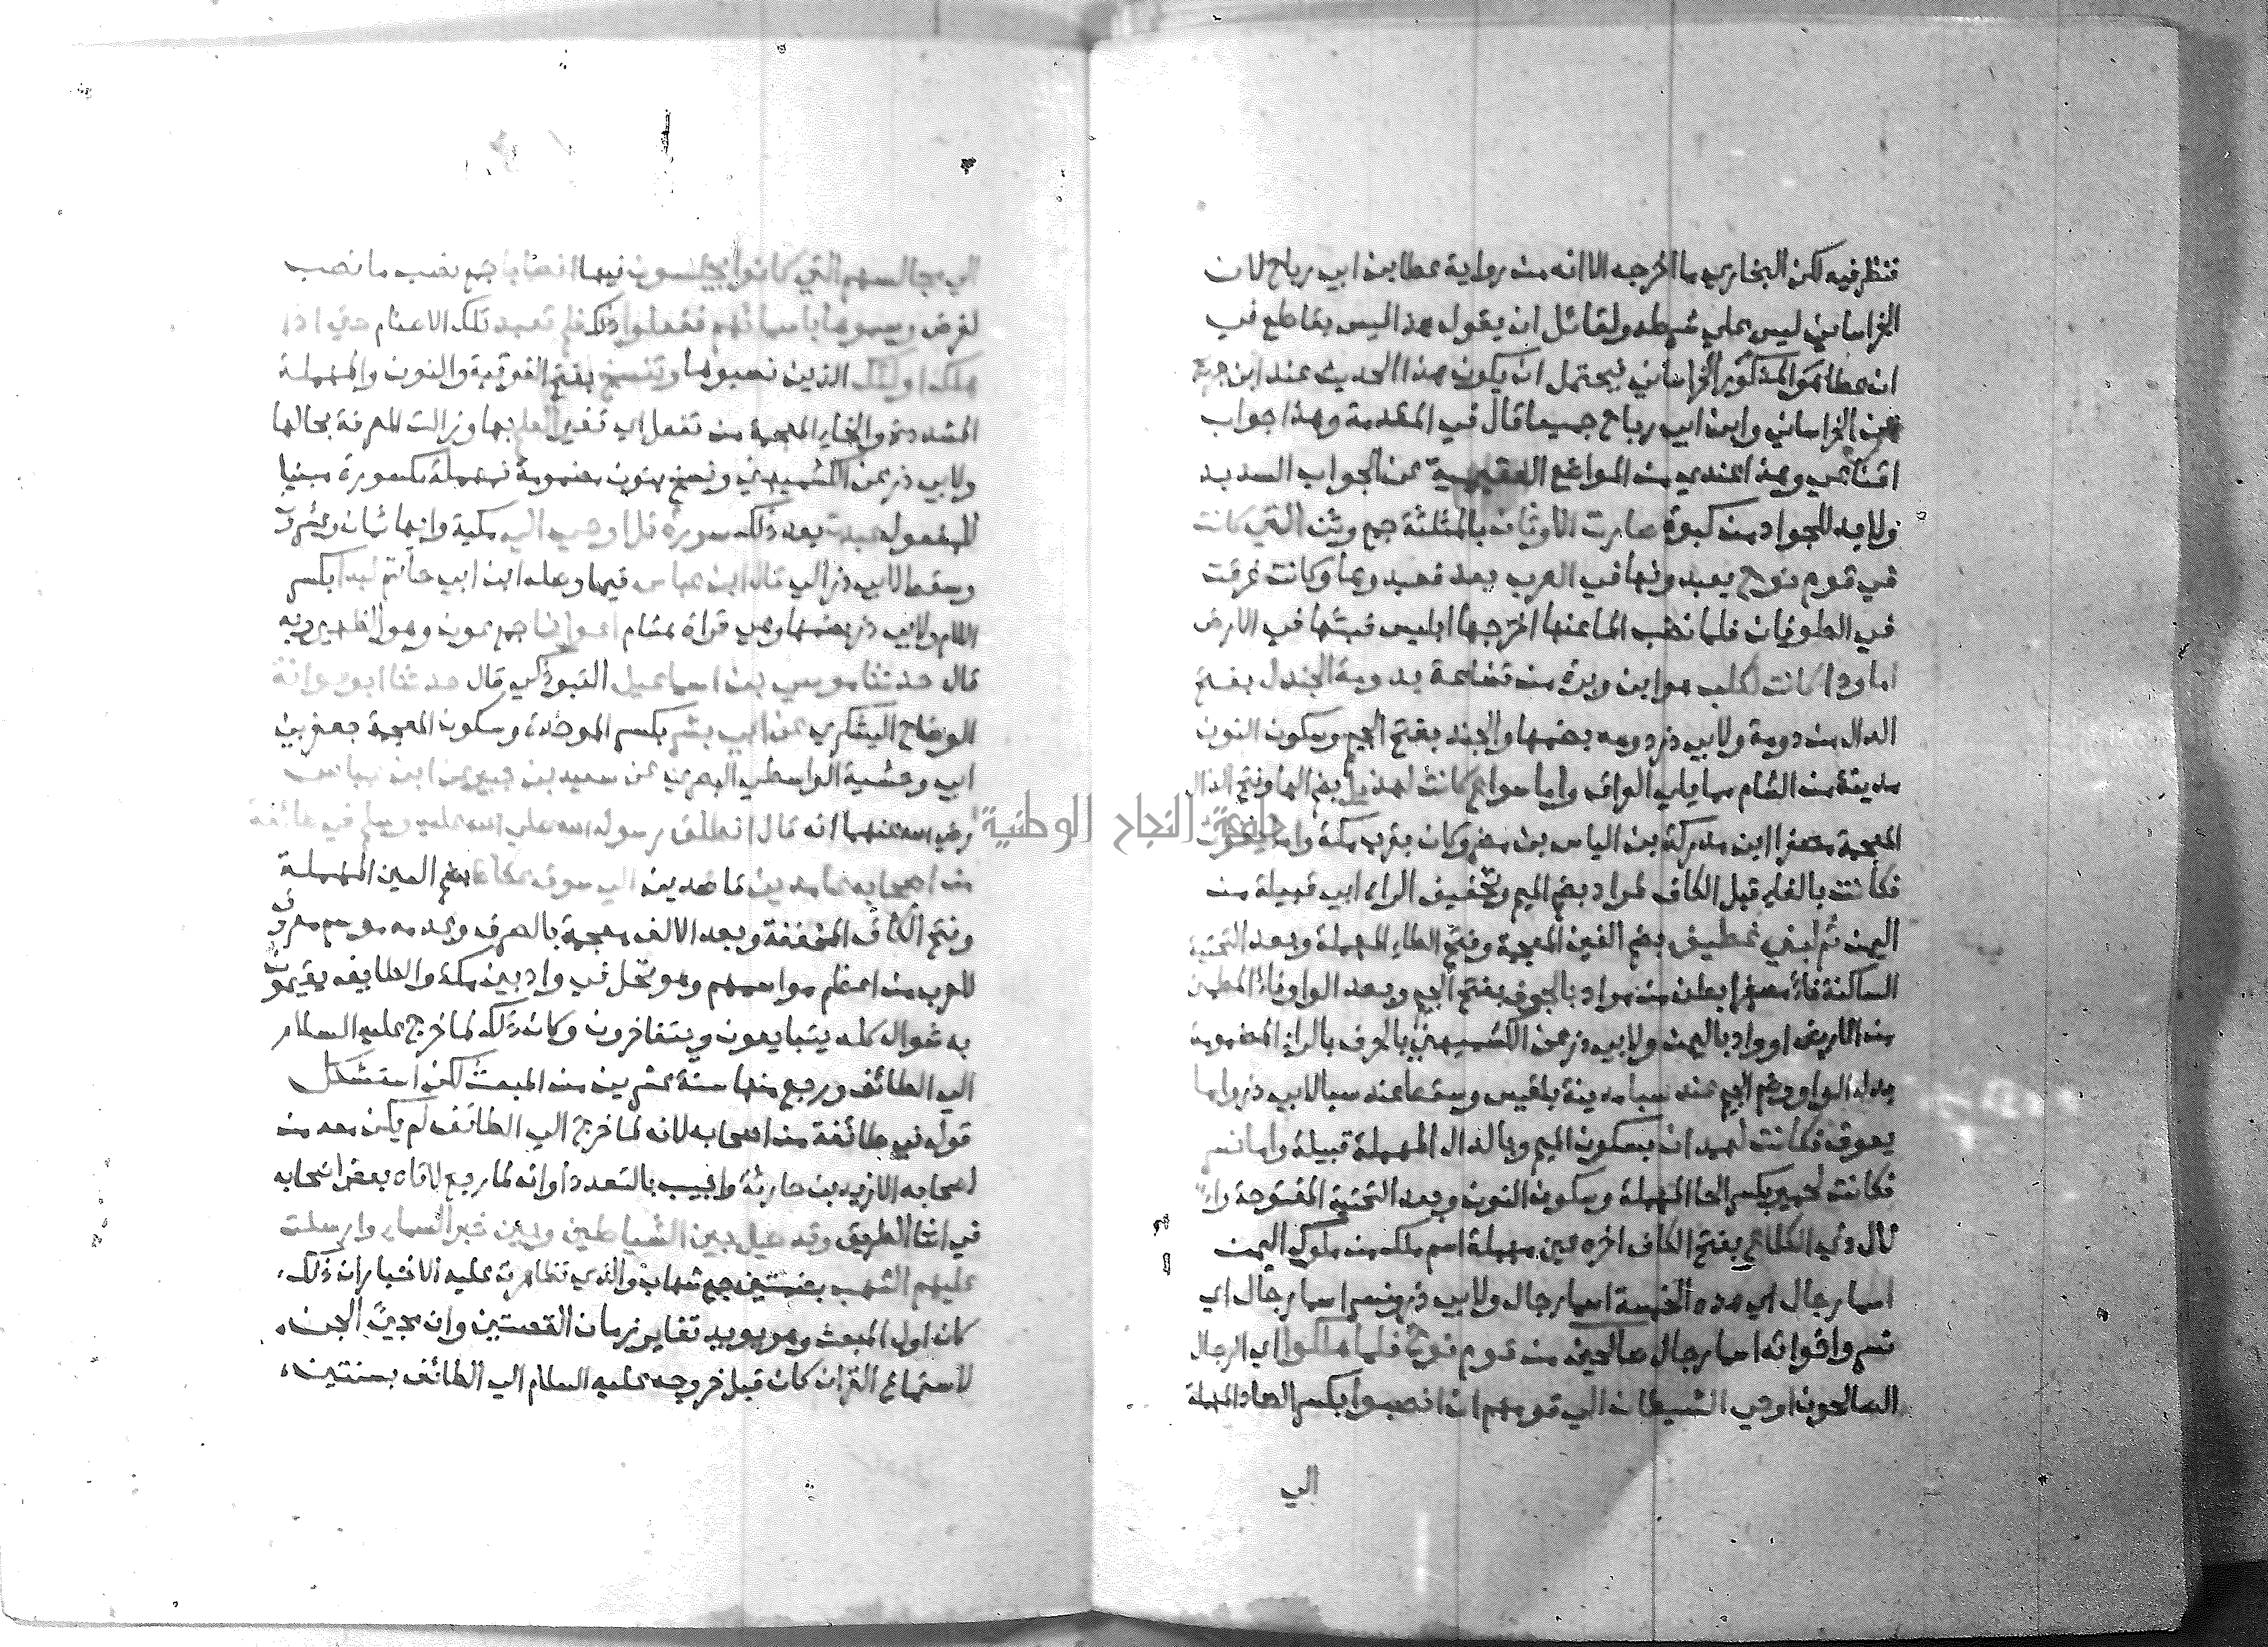 فنظر فيه لكن البخاري ما اخرجه الا انه من رواية عطا بن ابي رباح لان
الخراساني ليس علي شرطه ولقائل ان يقول هذا ليس بقاطع في
ان عطا هو المذكور الخراساني فيحتمل ان يكون هذا الحديث عند ابن جريج
عن الخراساني وابن ابي رباح جميعا قال في المقدمة وهذا جواب
اقناعي وهذا عندي من المواضع العقيمة عن الجواب السديد
ولا بد للجواد من كبوة صارت الاوثان بالمثلثة جمع وثن التي كانت
في قوم نوح يعبدونها في العرب بعد فعبدوها وكانت غرقت
في الطوفان فلما نضب الما عنها اخرجها ابليس فبثها في الارض
اما ود كانت لكلب هو ابن وبرة من قضاعة بدومة الجندل بفتح
الدال من دومة ولابي ذر دومه بضمها والجند بفتح الجيم وسكون النون
مدينة من الشام مما يلي العراق واما سواع كانت لهذيل بضم الها وفتح الذال
المعجمة مصغرا ابن مدركة بن الياس بن مضر وكان بقرب مكة واما يغوث
فكانت بالفاء قبل الكاف لمراد بضم الميم وتخفيف الراء ابي قبيلة من
اليمن ثم لبني غطيف بضم الغين المعجمة وفتح الطاء المهملة وبعد التحتية
الساكنة فاء مصغرا بطن من مراد بالجوف بفتح الجيم وبعد الواو فاء المطمئن
من الارض او واد باليمن ولابي ذر عن الكشميهني بالجرف بالراء المضمومة
بدل الواو وضم الجيم عند سبا مدينة بلقيس وسقط عند سبا لابي ذر واما
يعوق فكانت لهمدان بسكون الميم وبالدال المهملة قبيلة واما نسر
فكانت لحمير بكسر الحا المهملة وسكون النون وبعد التحتية المفتوحة راء
لال ذي الكلاع بفتح الكاف اخره عين مهملة اسم ملك من ملوك اليمن
اسما رجال اي هذه الخمسة اسما رجال ولابي ذر ونسر اسما رجال اي
نسر واخواته اسما رجال صالحين من قوم نوح فلما هلكوا اي الرجال
الصالحون اوحي الشيطان الي قومهم ان انصبوا بكسر الصاد المهملة
الي
الي مجالسهم التي كانوا يجلسون فيها انصابا جمع نصب ما نصب
لغرض وسموها باسمائهم ففعلوا ذلك فلم تعبد تلك الاصنام حتي اذا
هلك اولئك الذين نصبوها وتنسخ بفتح الفوقية والنون والمهملة
المشددة والخاء المعجمة من تفعل اي تغير العلم بها وزالت المعرفة بحالها
ولابي ذر عن الكشميهني ونسخ بنون مضمومة فمهملة مكسورة مبنيا
للمفعول عبدت بعد ذلك سورة قل اوحي الي مكية وايها ثمان وعشرون
وسقط لابي ذر الي قال ابن عباس فيما وصله ابن ابي حاتم لبدا بكسر
اللام ولابي ذر بضمها وهي قراة هشام اعوانا جمع عون وهو الظهير وبه
قال حدثنا موسي بن اسماعيل التبوذكي قال حدثنا ابو عوانة
الوضاح اليشكري عن ابي بشر بكسر الموحدة وسكون المعجمة جعفر بن
ابي وحشية الواسطي البصري عن سعيد بن جبير عن ابن عباس
رضي الله عنهما انه قال انطلق رسول الله صلي الله عليه وسلم في طائفة
من اصحابه عامدين قاصدين الي سوق عكاظ بضم العين المهملة
وفتح الكاف المخففة وبعد الالف معجمة بالصرف وعدمه موسم معروف
للعرب من اعظم مواسمهم وهو نخل في واد بين مكة والطايف يقيمون
به شوال كله يتبايعون ويتفاخرون وكان ذلك لما خرج عليه السلام
الي الطائف ورجع منها سنة عشر من المبعث لكن استشكل
قوله في طائفة من اصحابه لانه لما خرج الي الطائف لم يكن معه من
اصحابه الا زيد بن حارثة واجيب بالتعدد او انه لما رجع لاقاه بعض اصحابه
في اثنا الطريق وقد حيل بين الشياطين وبين خبر السماء وارسلت
عليهم الشهب بضمتين جمع شهاب والذي تظاهرت عليه الاخبار ان ذلك
كان اول المبعث وهو يويد تغاير زمان القصتين وان مجيئ الجن
لاستماع القران كان قبل خروجه عليه السلام الي الطائف بسنتين
جامعة النجاح الوطنية